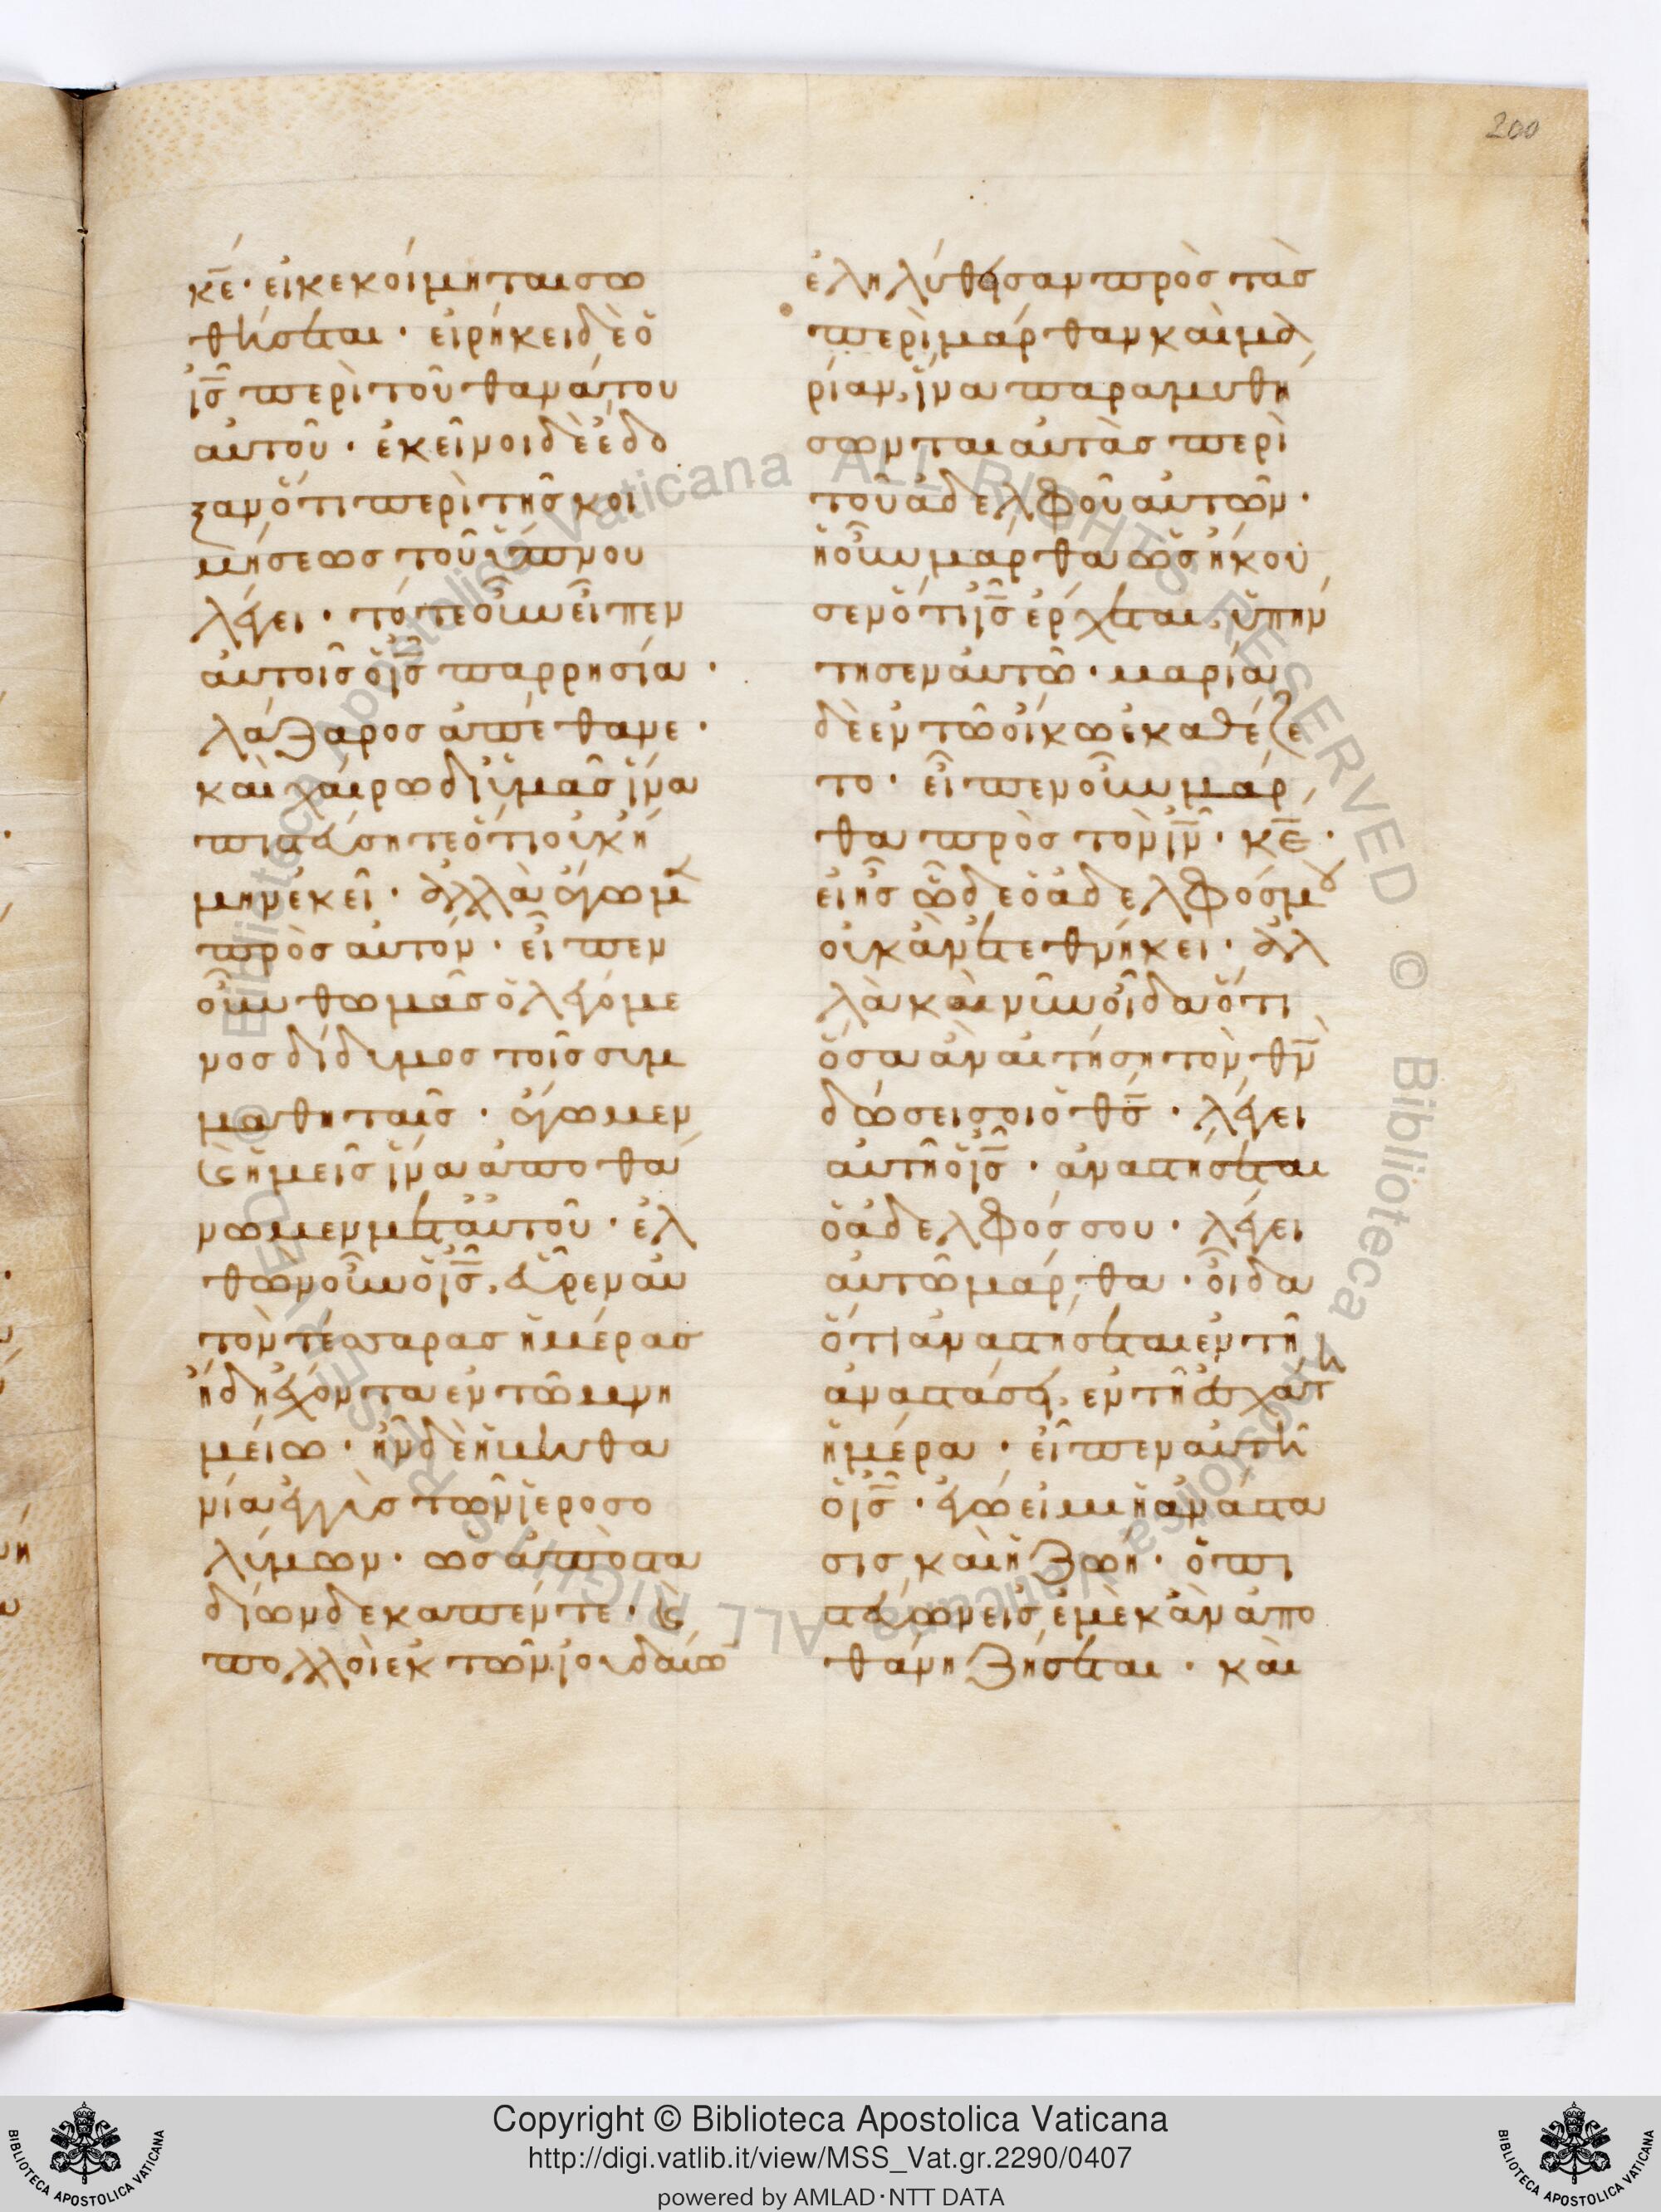 200
κε̄· εἰ κεκοίμηται σω
θήσεται· εἰρήκει δὲ ὁ
ις̄ περὶ τοῦ θανάτου
αὐτοῦ· ἐκεῖνοι δὲ ἔδο
ξαν ὅτι περὶ τῆς κοι
μήσεως τοῦ ὕπνου
λέγει· τότε οὖν εἶπεν
αὐτοῖς ὁ ις̄ παρρησία·
λάζαρος ἀπέθανε·
καὶ χαίρω δι ὑμᾶς ἵνα
πιστεύσητε ὅτι οὐκ ἤ
μην ἐκεῖ· ἀλλὰ ἄγωμ
πρὸς αὐτόν· εἶπεν
οὖν θωμᾶς ὁ λεγόμε
νος δίδυμος τοῖς συμ
μαθηταῖς· ἄγωμεν
καὶ ἡμεῖς ἵνα ἀποθά
νωμεν μετ αὐτοῦ· ἐλ
θὼν οὖν ὁ ις̄, εὗρεν αὐ
τὸν τέσσαρας ἡμέρας
ἤδη ἔχοντα ἐν τῶ μνη
μείω· ἦν δὲ ἡ βηθα
νία ἐγγὺς τῶν ἱεροσο
λύμων· ὡς ἀπὸ στα
δίων δεκαπέντε· καὶ
πολλοὶ ἐκ τῶν ἰουδαίω
ἐληλύθεισαν πρὸς τὰς
περὶ μάρθαν καὶ μα
ρίαν, ἵνα παραμυθή
σωνται αὐτὰς περὶ
τοῦ ἀδελφοῦ αὐτῶν·
ἡ οὖν μάρθα ὡς ἤκου
σεν ὅτι ις̄ ἔρχεται, ὑπήν
τησεν αὐτῶ· μαρία
δὲ ἐν τῶ οἴκω ἐκαθέζε
το· εἶπεν οὖν μάρ
θα πρὸς τὸν ιν̄· κε̄·
εἰ ἦς ὧδε ὁ ἀδελφός μου
οὐκ ἂν ἐτεθνήκει· ἀλ
λὰ καὶ νῦν οἶδα ὅτι
ὅσα ἂν αἰτήση τὸν θν̄
δώσει σοι ὁ θς̄· λέγει
αὐτῆ ὁ ις̄· ἀναστήσεται
ὁ ἀδελφός σου· λέγει
αὐτῶ μάρθα· οἶδα
ὅτι ἀναστήσεται ἐν τῆ
ἀναστάσει, ἐν τῆ ἐσχάτη
ἡμέρα· εἶπεν αὐτῆ
ὁ ις̄· ἐγώ εἰμι ἡ ἀνάστα
σις καὶ ἡ ζωή· ὁ πι
στεύων εἰς ἐμὲ κἂν ἀπο
θάνη ζήσεται· καὶ
Copyright © Biblioteca Apostolica Vaticana
http://digi.vatlib.it/view/MSS_Vat.gr.2290/0407
powered by AMLAD·NTT DATA